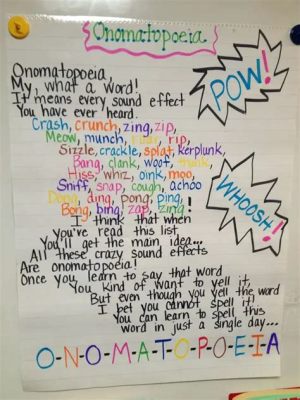 Onomatopoeia
Onomatopoeia,
My, what a word!
It means every sound effect
You have ever heard.
Crash, crunch, zing, zip,
Meow, munch, rip,
Sizzle, crackle, splat, kerplunk,
Bang, clank, woot,
Hiss, whiz, oink, moo,
Sniff, snap, cough, achoo
Dong, ding, pong, ping,
Bong, bing, zap, zing!
I think that when
you've read this list
You'll get the main idea...
All these crazy sound effects
Are onomatopoeia!
Once you learn to say that word
You kind of want to yell it,
But even though you yell the word
I bet you cannot spell it!
You can learn to spell this
word in just a single day...
O-N-O-M-A-T-O-P-O-E-I-A
POW!
WHOOSH!